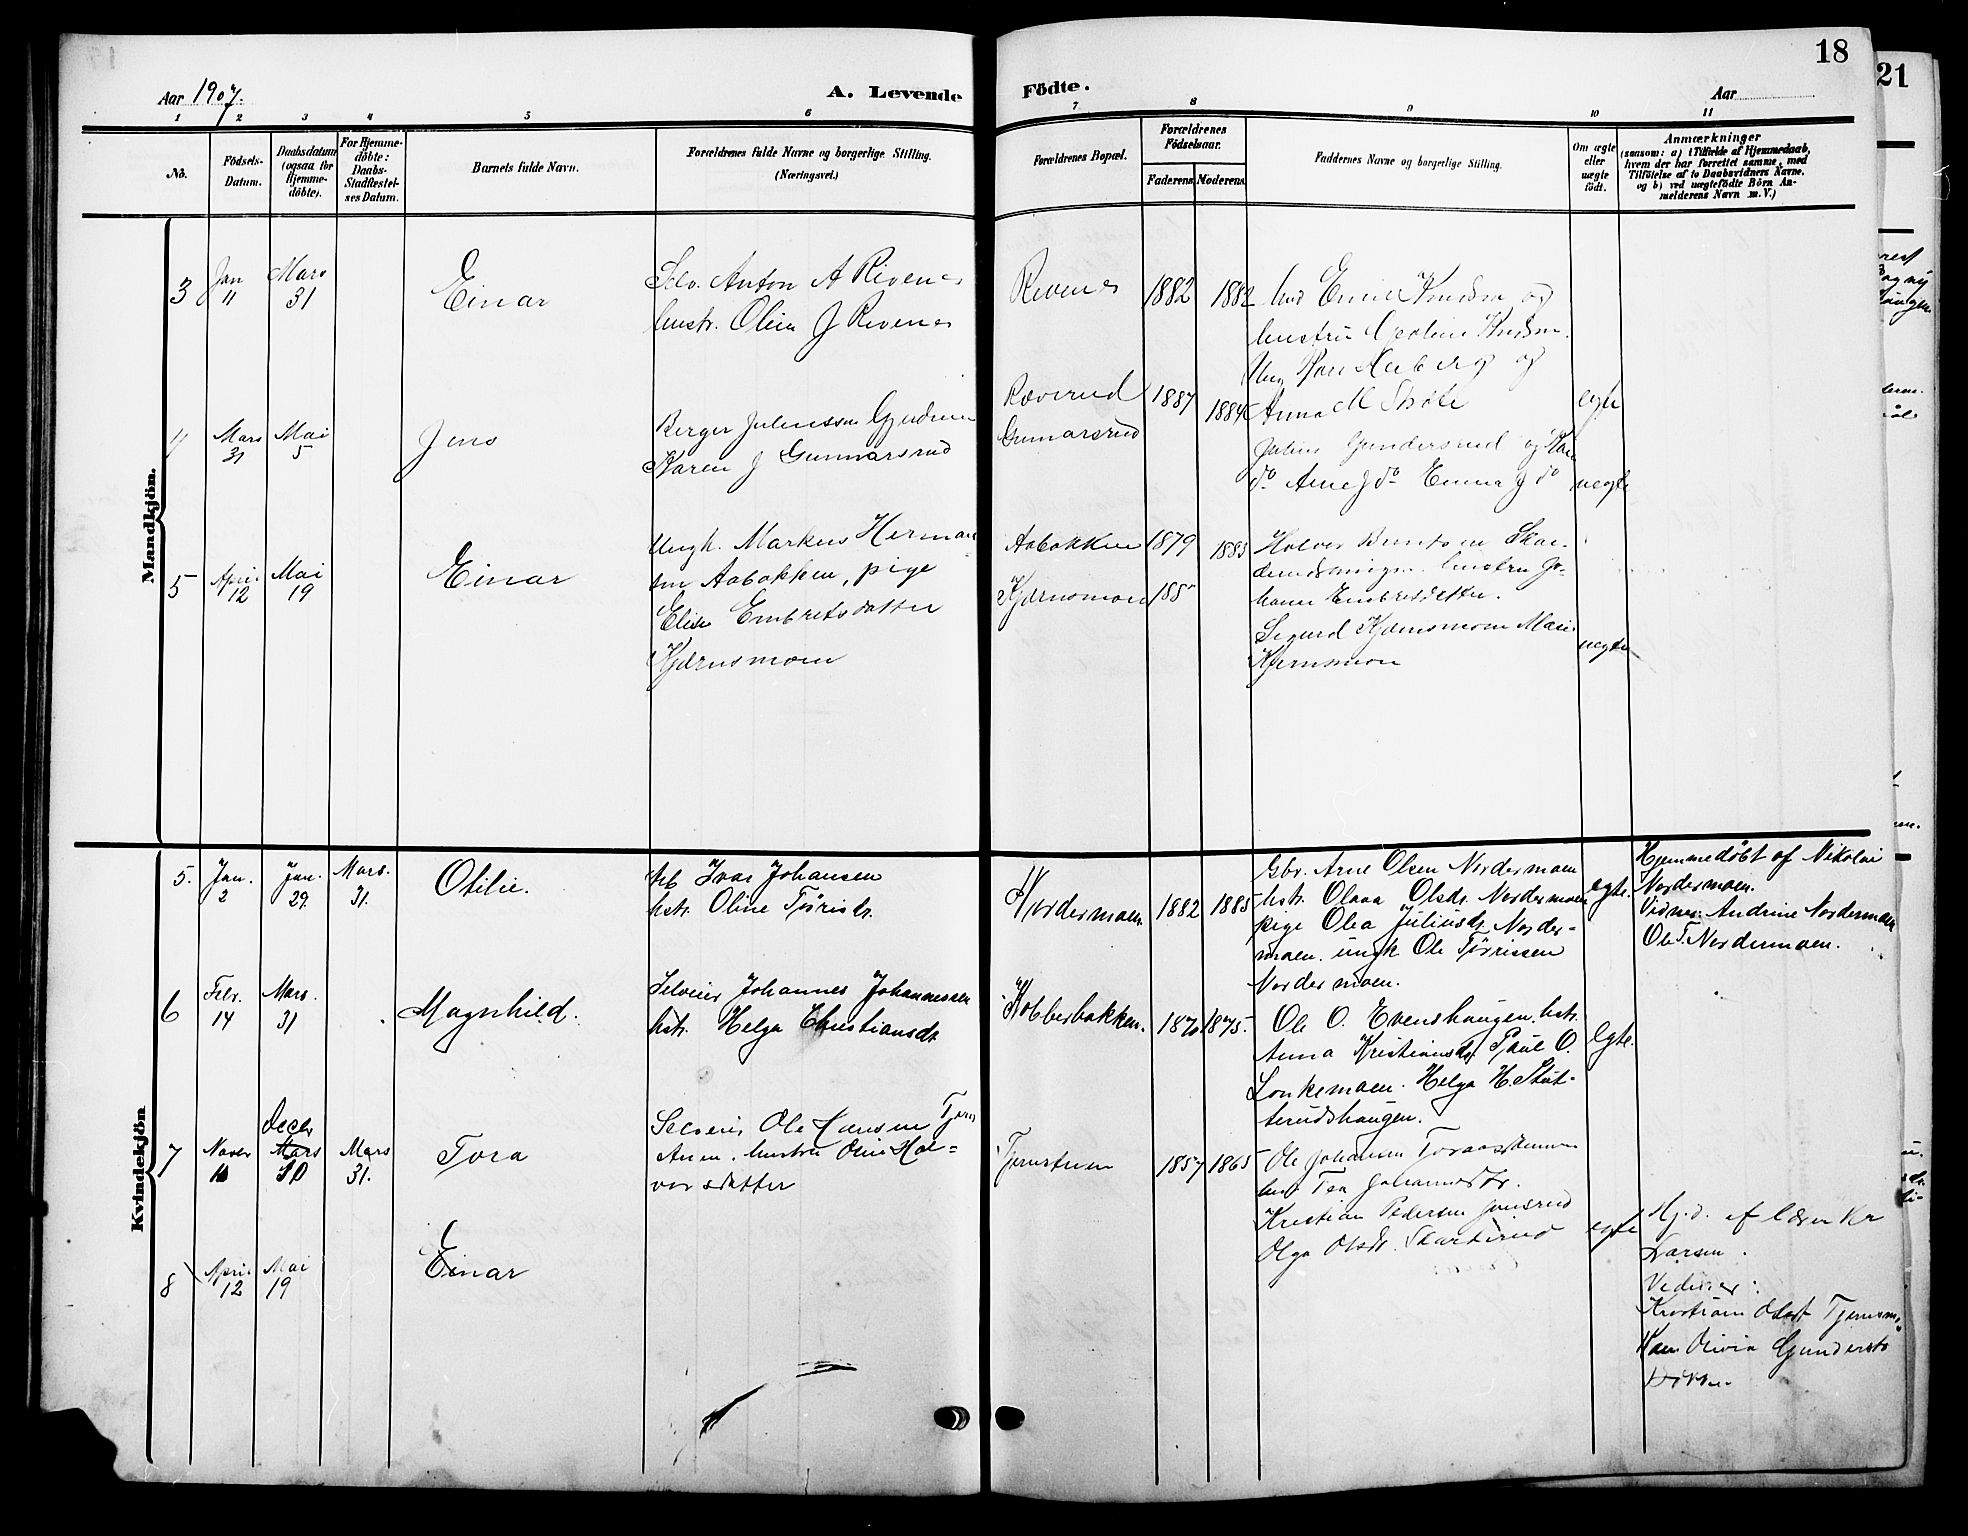 18
21
Aar 1907.
A. Levende Födte.
Aar
1 2 3 4 5 6 7 8 9 10 11
No.
Födsels-Datum.
Daabsdatum (ogsaa for Hjemme-döbte).
For Hjemme-döbte: Daabs-Stadfæstel-ses Datum.
Barnets fulde Navn.
Forældrenes fulde Navne og borgerlige Stilling. (Næringsvei.)
Forældrenes Bopæl.
Forældrenes Födselsaar.
Faderens Moderens
Faddernes Navne og borgerlige Stilling.
Om ægte eller uægte født.
Anmærkninger
(saasom: a) i Tilfælde af Hjemmedaab,
hvem der har forrettet samme, med
Tilföielse af to Daabsvidners Navne,
og b) ved uægtefödte Börn An-
melderens Navn m. V.)
Mandkjön.
3 Jan 11 Mars 31
Einar
Selv. Anton A Rivenes
hustr. Olein J Rivenes
Rivenes
1882 1882
Emil Knudsen og
hustru Knudsen
og
Anna M
egte
4 Mars 31 Mai 5
Jens
Berger Juliussen
Karen J Gunnarsrud
Røverud
Gunnarsrud
1887 1884
Julius Gundersrud og Kar
do Arne J do Emma J do
uegte
5 April 12 Mai 19
Einar
Ungk. Markus Herman
sen Aabakken, pige
Elise Embretsdatter
Kjærnsmoen
Aabakken 1879 1883
Kjærnsmoen 188
Halvor Skar-
hustru Jo-
hanne Embretsdatter.
Sigurd Kjærnsmoen Mari
Kjernsmoen
uegte
Kvindekjön
5. Jan. 2 Jan. 29. Mars. 31.
Otilie.
Arb Ivar Johansen
hstr. Oline Tørisdr.
Nordermoen. 1882 1885
Gbr. Arne Olsen Nordermoen
hstr. Olava Olsdr. Nordermoen
pige Olea Juliusdr. Norder-
moen. ungk Ole Tørrissen
Nordermoen.
egte.
Hjemmedøbt af Nikolai
Nordermoen.
Vidner: Andrine Nordermoen
Ole T. Nordermoen.
6 Febr. 14 Mars. 31
Magnhild.
Selveier Johannes Johannessen
hstr. Helga Christiansdr
Kobberbakken. 1870 1875.
Ole O. Evenshaugen. hstr.
Anna Kristiansdr. Paul O.
Lonkemoen. Helga H. Stot-
terudshaugen.
egte.
7 Novbr 10 Decbr Mars 10 Mars 31.
Tora
Selveier Ole Hansen Tjern
hustru Oline Hal-
vorsdatter
1857 1865
Ole Johansen
Tea Johannesdr.
Kristian Pedersen
Olga Olsdr.
egte
Hj.d. af lærer Kr
Larsen.
Vidner:
Olivia Gunders
8 April 12 Mai 19
Einar